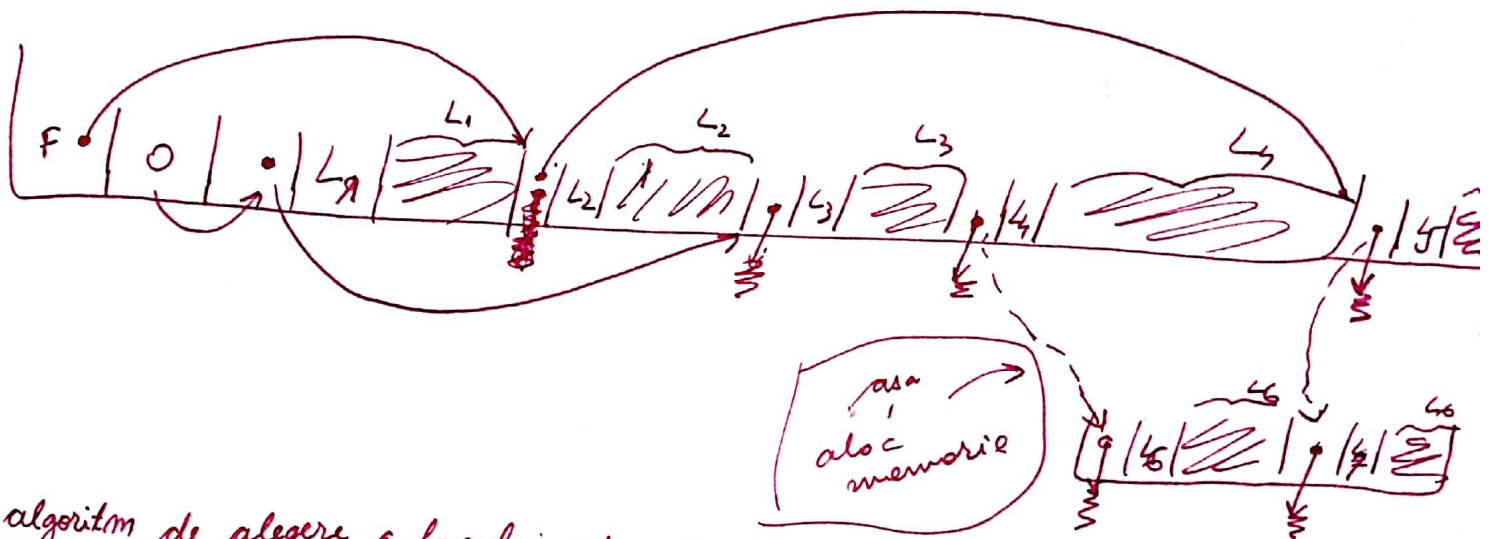 L1 L2 L3 L4
F O L1 L2 L3 L4 L5
asa
aloc
memorie
L6 L6
L6 L7
algoritm de alegere a